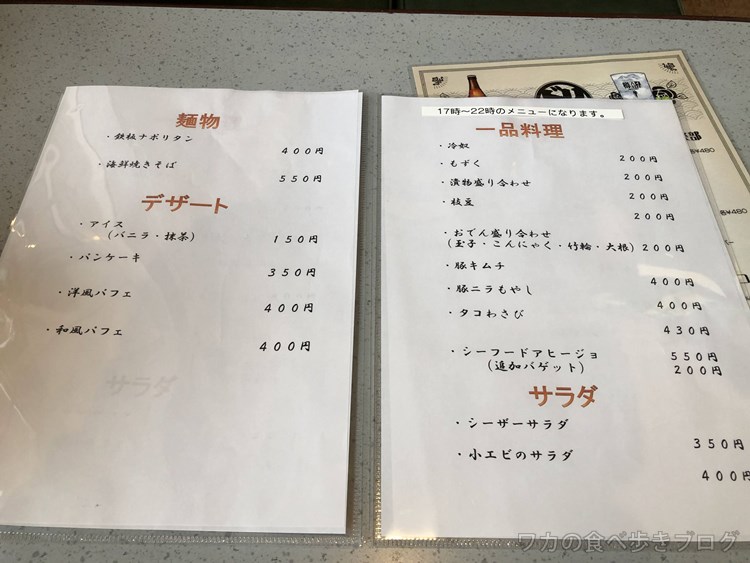 麺物
・鉄板ナポリタン
４００円
・海鮮焼きそば
５５０円
デザート
・アイス
(バニラ・抹茶) １５０円
・パンケーキ
３５０円
・洋風パフェ
４００円
・和風パフェ
４００円
サラダ
17時～22時のメニューになります。
一品料理
・冷奴
２００円
・もずく
２００円
・漬物盛り合わせ
２００円
・枝豆
２００円
・おでん盛り合わせ
(玉子・こんにゃく・竹輪・大根) ２００円
・豚キムチ
４００円
・豚ニラもやし
４００円
・タコわさび
４３０円
・シーフードアヒージョ ５５０円
(追加バゲット) ２００円
サラダ
・シーザーサラダ
３５０円
・小エビのサラダ
４００円
¥480
¥480
ワカの食べ歩きブログ